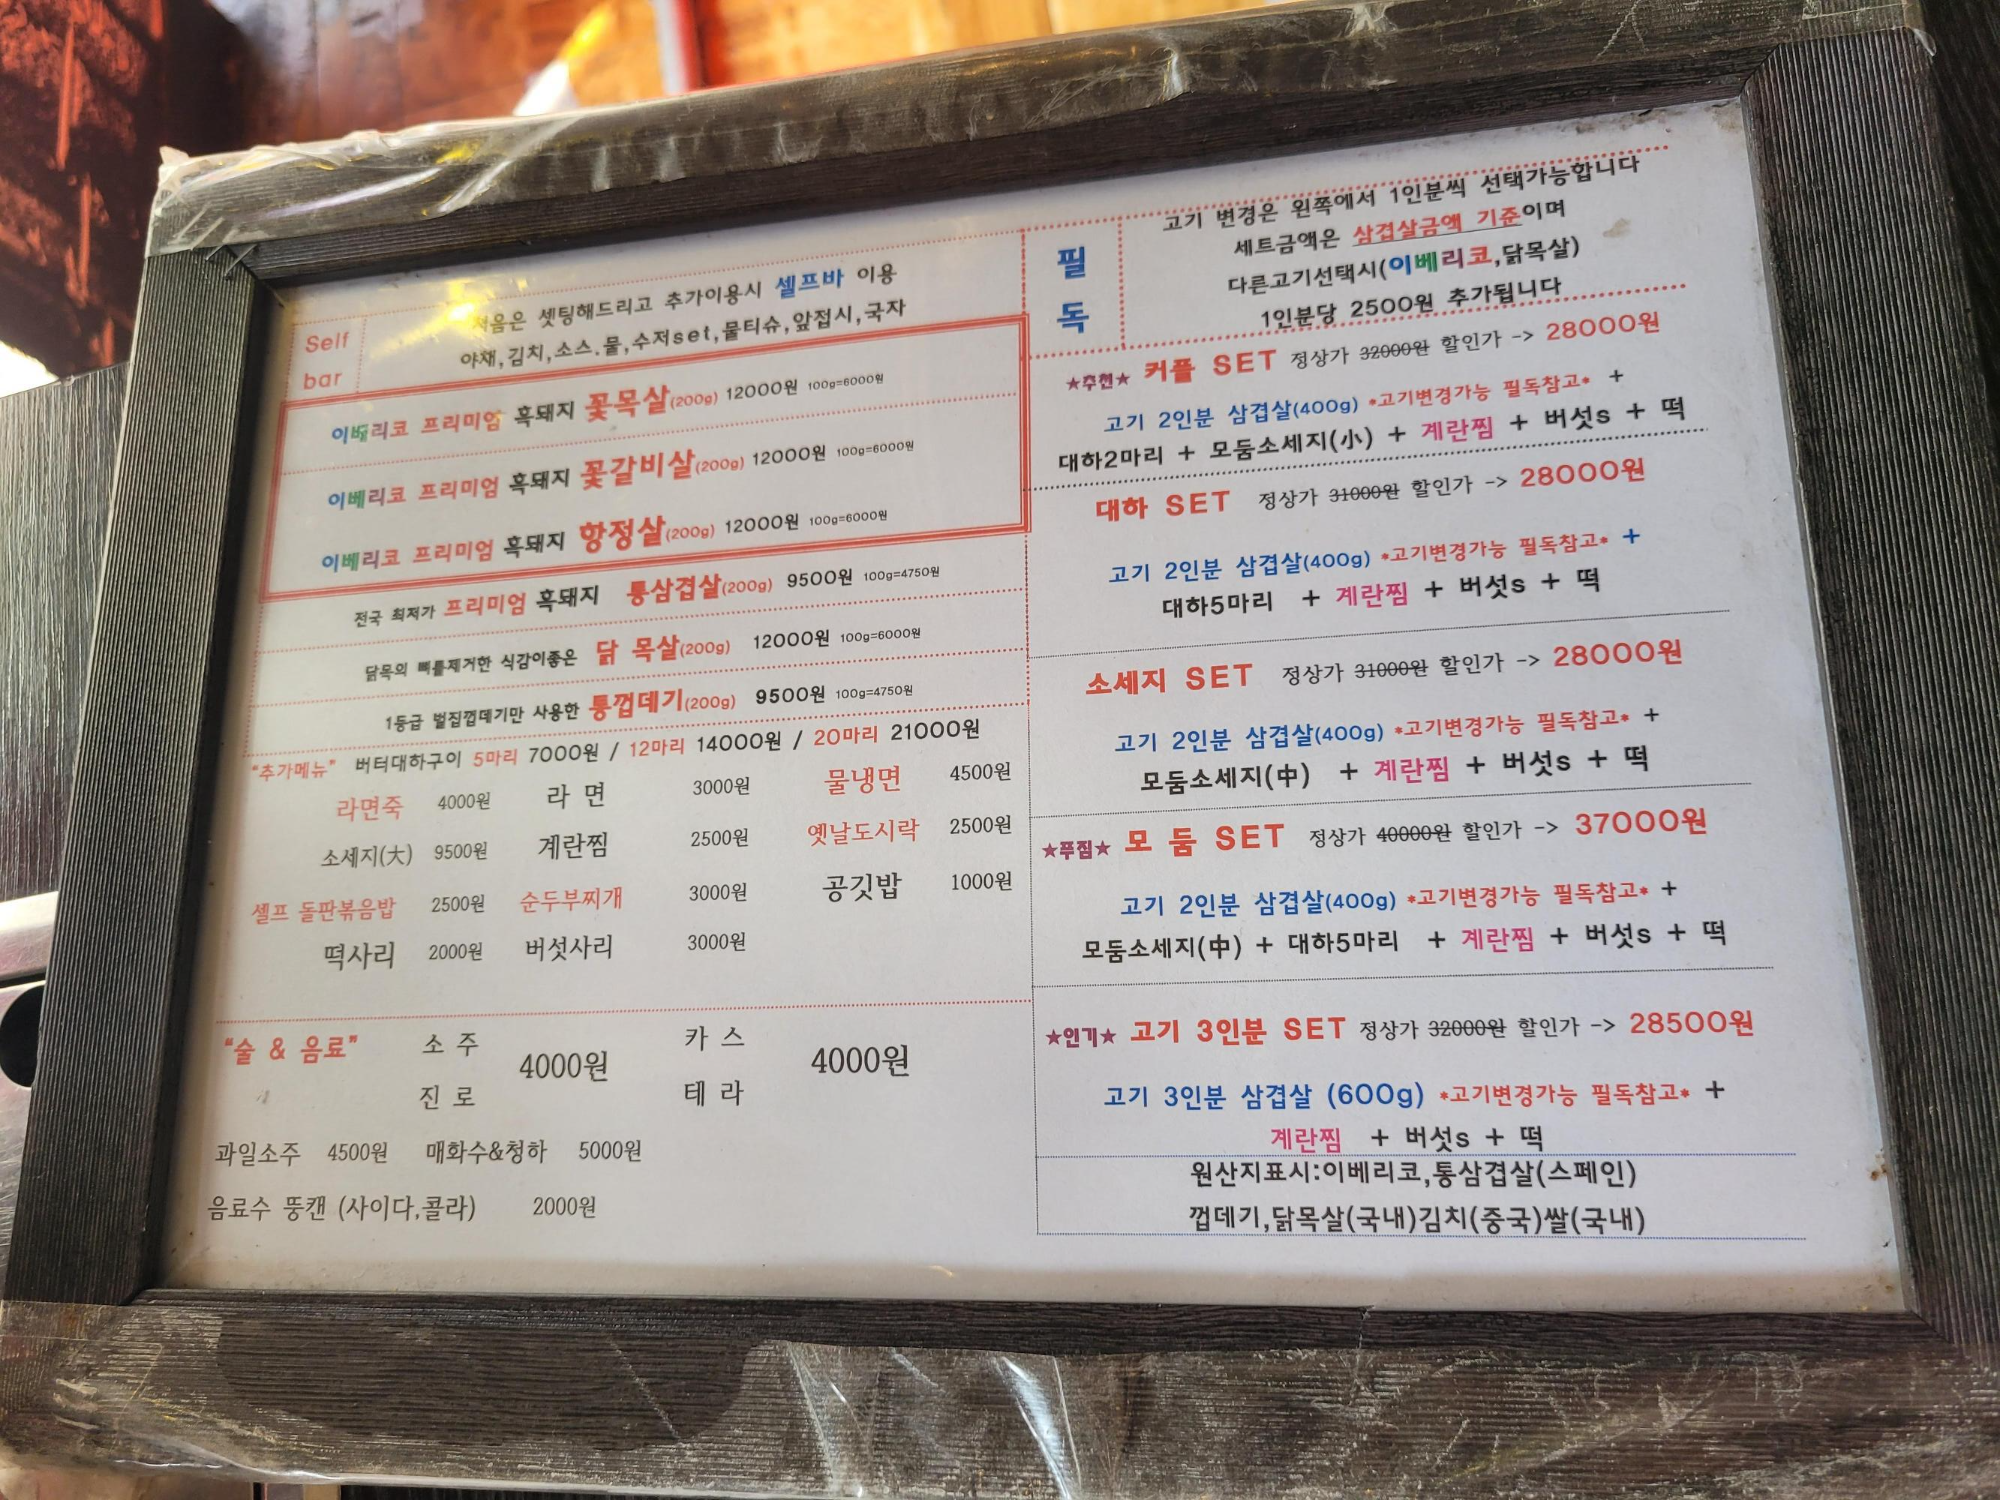 Self
bar
처음은 셋팅해드리고 추가이용시 셀프바 이용
야채,김치,소스.물,수저set,물티슈,앞접시,국자
이베리코 프리미엄 흑돼지 꽃목살(200g) 12000원 100g=6000원
이베리코 프리미엄 흑돼지 꽃갈비살(200g) 12000원 100g=6000원
이베리코 프리미엄 흑돼지 항정살(200g) 12000원 100g=6000원
전국 최저가 프리미엄 흑돼지 통삼겹살(200g) 9500원 100g=4750원
닭목의 뼈를제거한 식감이좋은 닭 목살(200g) 12000원 100g=6000원
1등급 벌집껍데기만 사용한 통껍데기(200g) 9500원 100g=4750원
"추가메뉴" 버터대하구이 5마리 7000원 / 12마리 14000원 / 20마리 21000원
라면죽 4000원 라 면 3000원 물냉면 4500원
소세지(大) 9500원 계란찜 2500원 옛날도시락 2500원
셀프 돌판볶음밥 2500원 순두부찌개 3000원 공깃밥 1000원
떡사리 2000원 버섯사리 3000원
"술 & 음료" 소 주 4000원 카 스 4000원
진 로 테 라
과일소주 4500원 매화수&청하 5000원
음료수 뚱캔 (사이다,콜라) 2000원
필
독
고기 변경은 왼쪽에서 1인분씩 선택가능합니다
세트금액은 삼겹살금액 기준이며
다른고기선택시(이베리코,닭목살)
1인분당 2500원 추가됩니다
★추천★ 커플 SET 정상가 32000원 할인가 -> 28000원
고기 2인분 삼겹살(400g) *고기변경가능 필독참고* +
대하2마리 + 모둠소세지(小) + 계란찜 + 버섯s + 떡
대하 SET 정상가 31000원 할인가 -> 28000원
고기 2인분 삼겹살(400g) *고기변경가능 필독참고* +
대하5마리 + 계란찜 + 버섯s + 떡
소세지 SET 정상가 31000원 할인가 -> 28000원
고기 2인분 삼겹살(400g) *고기변경가능 필독참고* +
모둠소세지(中) + 계란찜 + 버섯s + 떡
★푸짐★ 모 둠 SET 정상가 40000원 할인가 -> 37000원
고기 2인분 삼겹살(400g) *고기변경가능 필독참고* +
모둠소세지(中) + 대하5마리 + 계란찜 + 버섯s + 떡
★인기★ 고기 3인분 SET 정상가 32000원 할인가 -> 28500원
고기 3인분 삼겹살 (600g) *고기변경가능 필독참고* +
계란찜 + 버섯s + 떡
원산지표시:이베리코,통삼겹살(스페인)
껍데기,닭목살(국내)김치(중국)쌀(국내)